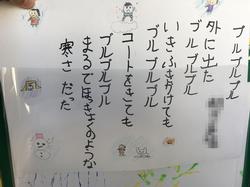 ブルブルブル
外に出た
ブルブルブル
いきふきかけても
ブルブルブル
コートをきても
ブルブルブル
まるでほっきょくのような
寒さだった